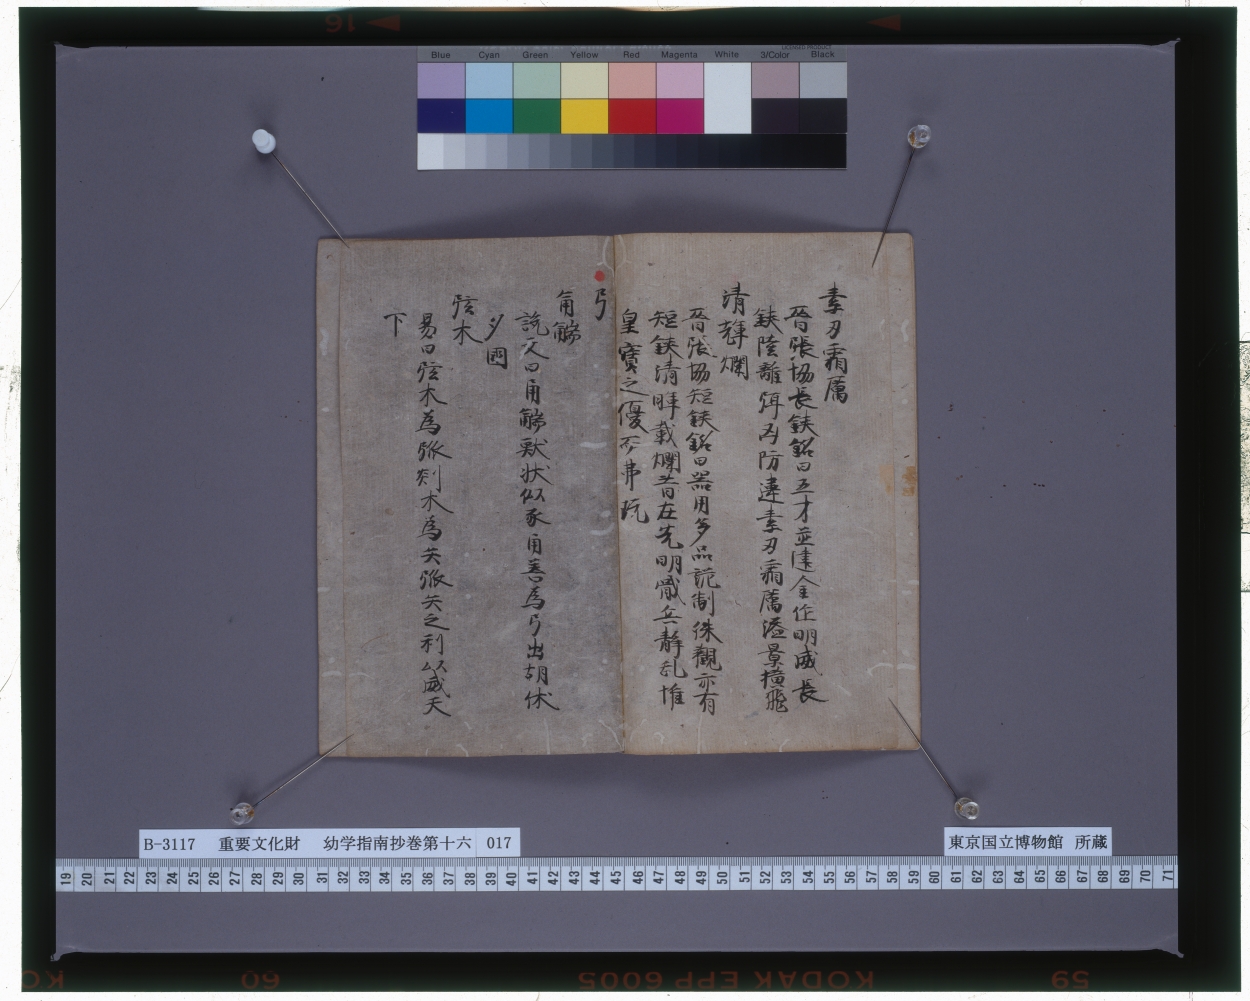 Blue Cyan Green Yellow Red Magenta White 3/Color Black
LICENSED PRODUCT
素刃霜厲
晉張協長鋏銘曰五才並建金作明威長
鋏陸離弭凶防違素刃霜厲溢景横飛
清輝爛
晉張協短鋏銘曰器用多品詭制殊觀亦有
短鋏清暉載爛昔在先明戢兵静乱惟
皇寶之優而弗玩
弓
角觿
說文曰角觿獸状似豕角善為弓出胡休
夕國
弦木
易曰弦木為弧剡木為矢弧矢之利以威天
下
B-3117 重要文化財 幼学指南抄巻第十六 017
東京国立博物館 所蔵
19 20 21 22 23 24 25 26 27 28 29 30 31 32 33 34 35 36 37 38 39 40 41 42 43 44 45 46 47 48 49 50 51 52 53 54 55 56 57 58 59 60 61 62 63 64 65 66 67 68 69 70 71
16
60
KODAK EPP 6005
59